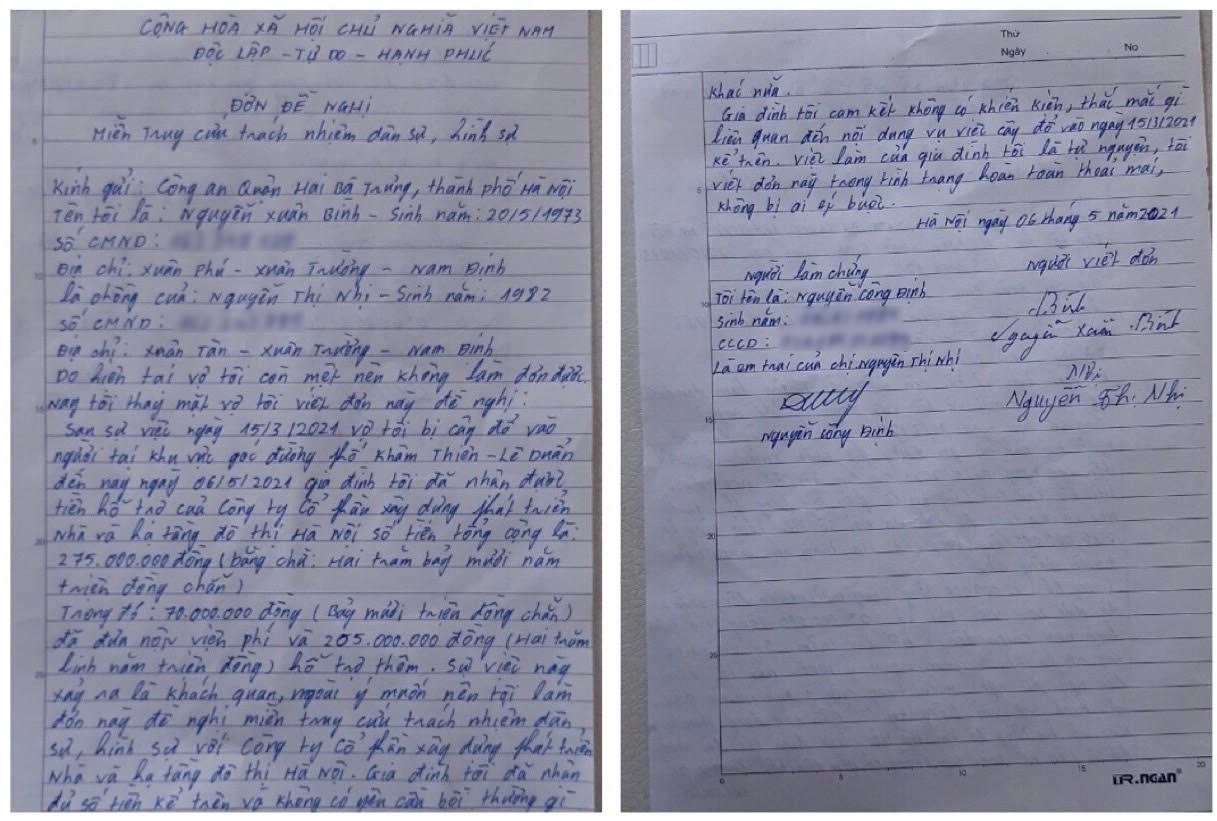 CỘNG HÒA XÃ HỘI CHỦ NGHĨA VIỆT NAM
ĐỘC LẬP - TỰ DO - HẠNH PHÚC
ĐƠN ĐỀ NGHỊ
Miễn truy cứu trách nhiệm dân sự, hình sự
Kính gửi: Công an Quận Hai Bà Trưng, thành phố Hà Nội
Tên tôi là: Nguyễn Xuân Bình - Sinh năm: 20/5/1973
Số CMND:
Địa chỉ: Xuân Phú - Xuân Trường - Nam Định
là chồng của: Nguyễn Thị Nhị - Sinh năm: 1982
Số CMND:
Địa chỉ: Xuân Tân - Xuân Trường - Nam Định
Do hiện tại vợ tôi còn mệt nên không làm đơn được.
Nay tôi thay mặt vợ tôi viết đơn này đề nghị:
Sau sự việc ngày 15/3/2021 vợ tôi bị cây đổ vào
người tại khu vực góc đường phố Khâm Thiên - Lê Duẩn
đến nay ngày 06/5/2021 gia đình tôi đã nhận được
tiền hỗ trợ của Công ty Cổ phần xây dựng phát triển
Nhà và hạ tầng đô thị Hà Nội số tiền tổng cộng là:
275.000.000 đồng (bằng chữ: Hai trăm bảy mươi năm
triệu đồng chẵn)
Trong đó: 70.000.000 đồng (Bảy mươi triệu đồng chẵn)
đã đưa nộp viện phí và 205.000.000 đồng (Hai trăm
linh năm triệu đồng) hỗ trợ thêm. Sự việc này
xảy ra là khách quan, ngoài ý muốn nên tôi làm
đơn này đề nghị miễn truy cứu trách nhiệm dân
sự, hình sự với Công ty Cổ phần xây dựng phát triển
Nhà và hạ tầng đô thị Hà Nội. Gia đình tôi đã nhận
đủ số tiền kể trên và không có yêu cầu bồi thường gì
Thứ
Ngày No
khác nữa.
Gia đình tôi cam kết không có khiến kiện, thắc mắc gì
liên quan đến nội dung vụ việc cây đổ vào ngày 15/3/2021
kể trên. Việc làm của gia đình tôi là tự nguyện, tôi
viết đơn này trong tình trạng hoàn toàn thoải mái,
không bị ai ép buộc.
Hà Nội ngày 06 tháng 5 năm 2021
Người làm chứng Người viết đơn
Tôi tên là: Nguyễn Công Định
Sinh năm: Bình
CCCD: Nguyễn Xuân Bình
Là em trai của chị Nguyễn Thị Nhị
Nhị
Nguyễn Thị Nhị
Nguyễn Công Định
MR.NGAN®